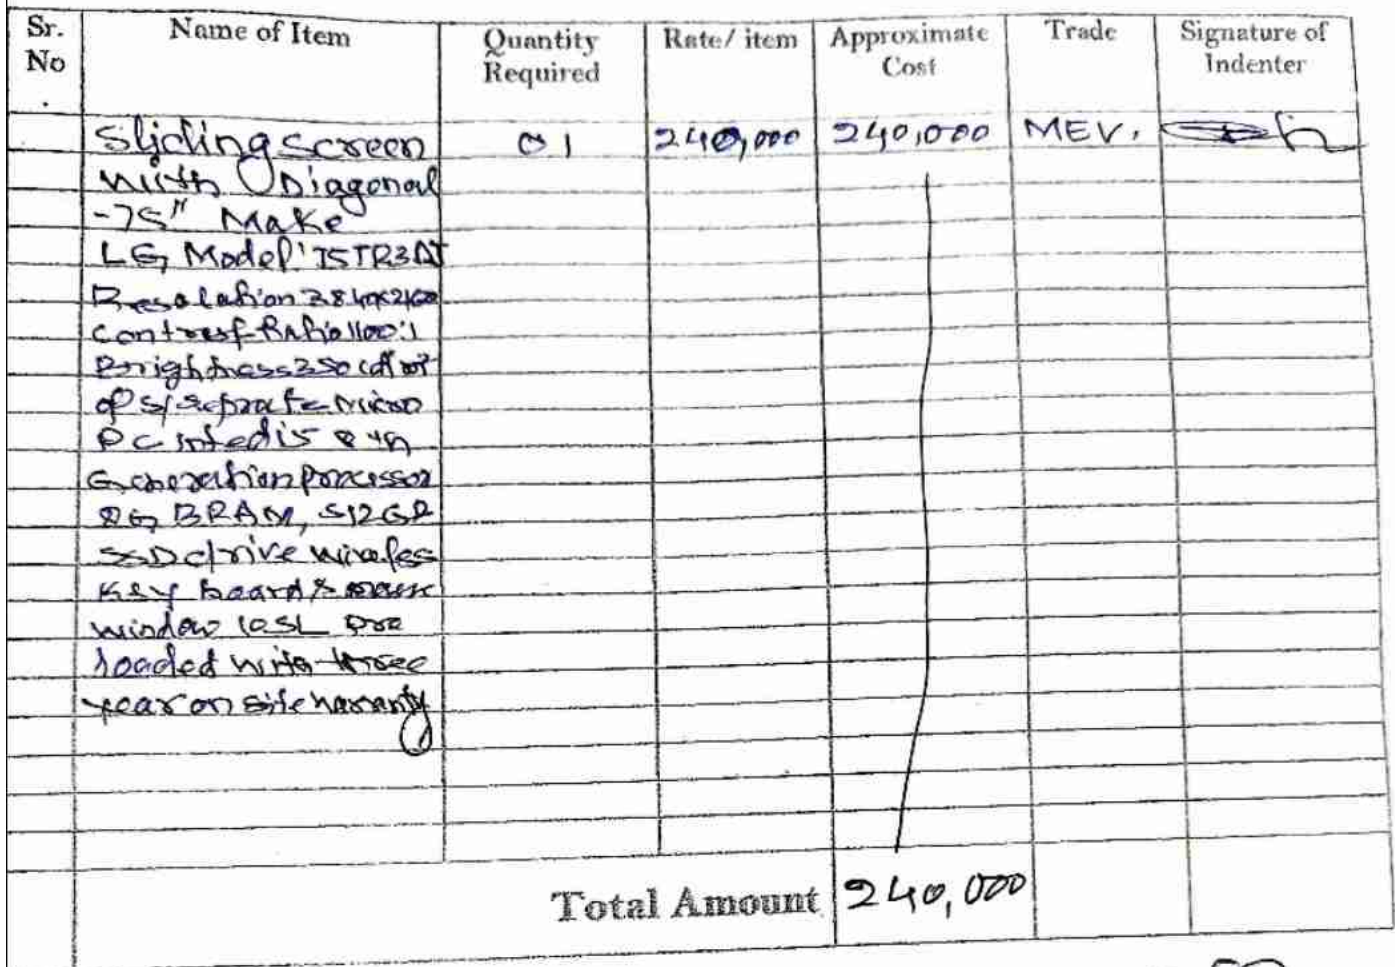 Sr. No. Name of Item Quantity Required Rate/ item Approximate Cost Trade Signature of Indenter
Sliding screen 01 240,000 240,000 MEV.
with Diagonal
-75" Make
LG, Model' 75TR3AJ
Resolation 3840x2160
Contrast Ratio 1100:1
Brightness 350 cd/m²
ops/seprate micro
PC inted i5 8th
Generation processor
8G BRAM, 512GB
SSD drive wireless
Key board & mouse
window 10SL pre
loaded with three
year on site warranty
Total Amount 240,000